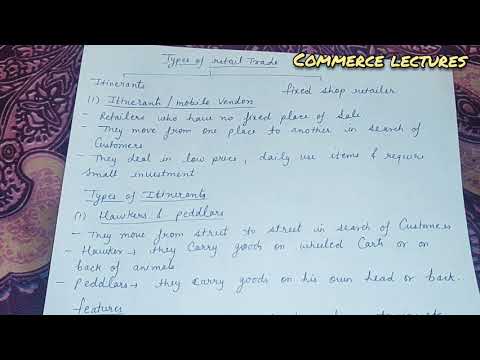 Commerce lectures
Types of retail Trade
Itinerants
fixed shop retailer
(1) Itinerants / mobile Vendors
- Retailers who have no fixed place of sale
- They move from one place to another in search of
Customers
- They deal in low price, daily use items & require
Small investment
Types of Itinerants
(1) Hawkers & peddlars
- They move from street to street in search of Customers
- Hawker → they Carry goods on wheeled Carts or on
back of animals
- Peddlars → they Carry goods on his own head or back.
features